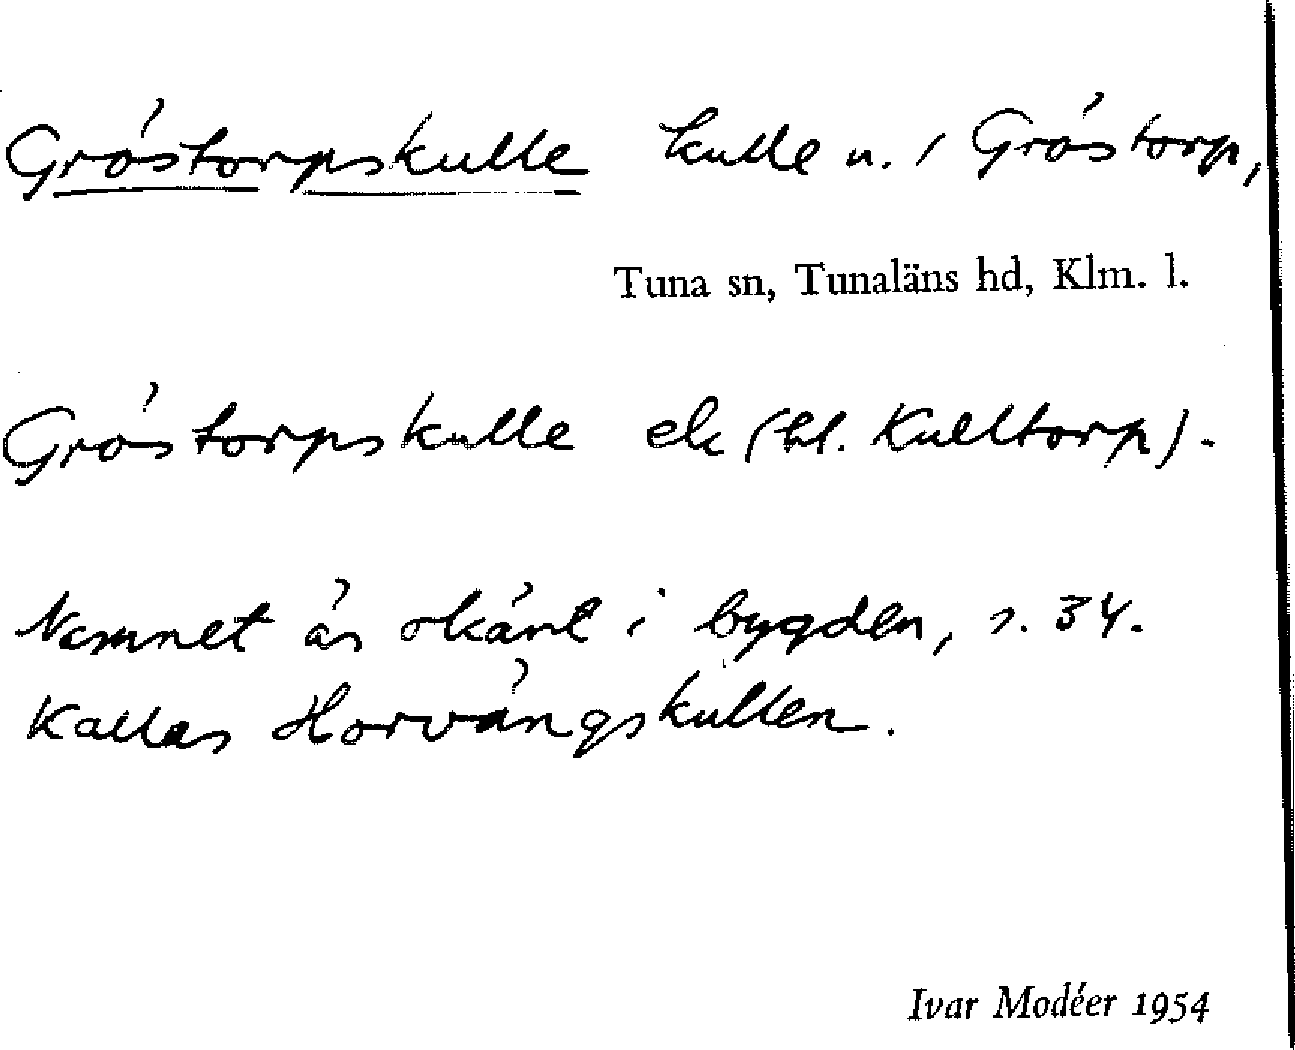 Gröstorpskulle kulle n. i Gröstorp,
Tuna sn, Tunaläns hd, Klm. l.
Gröstorpskulle ek (bl. Kulltorp).
Namnet är okänt i bygden, s. 34.
Kallas Horvängskullen.
Ivar Modéer 1954